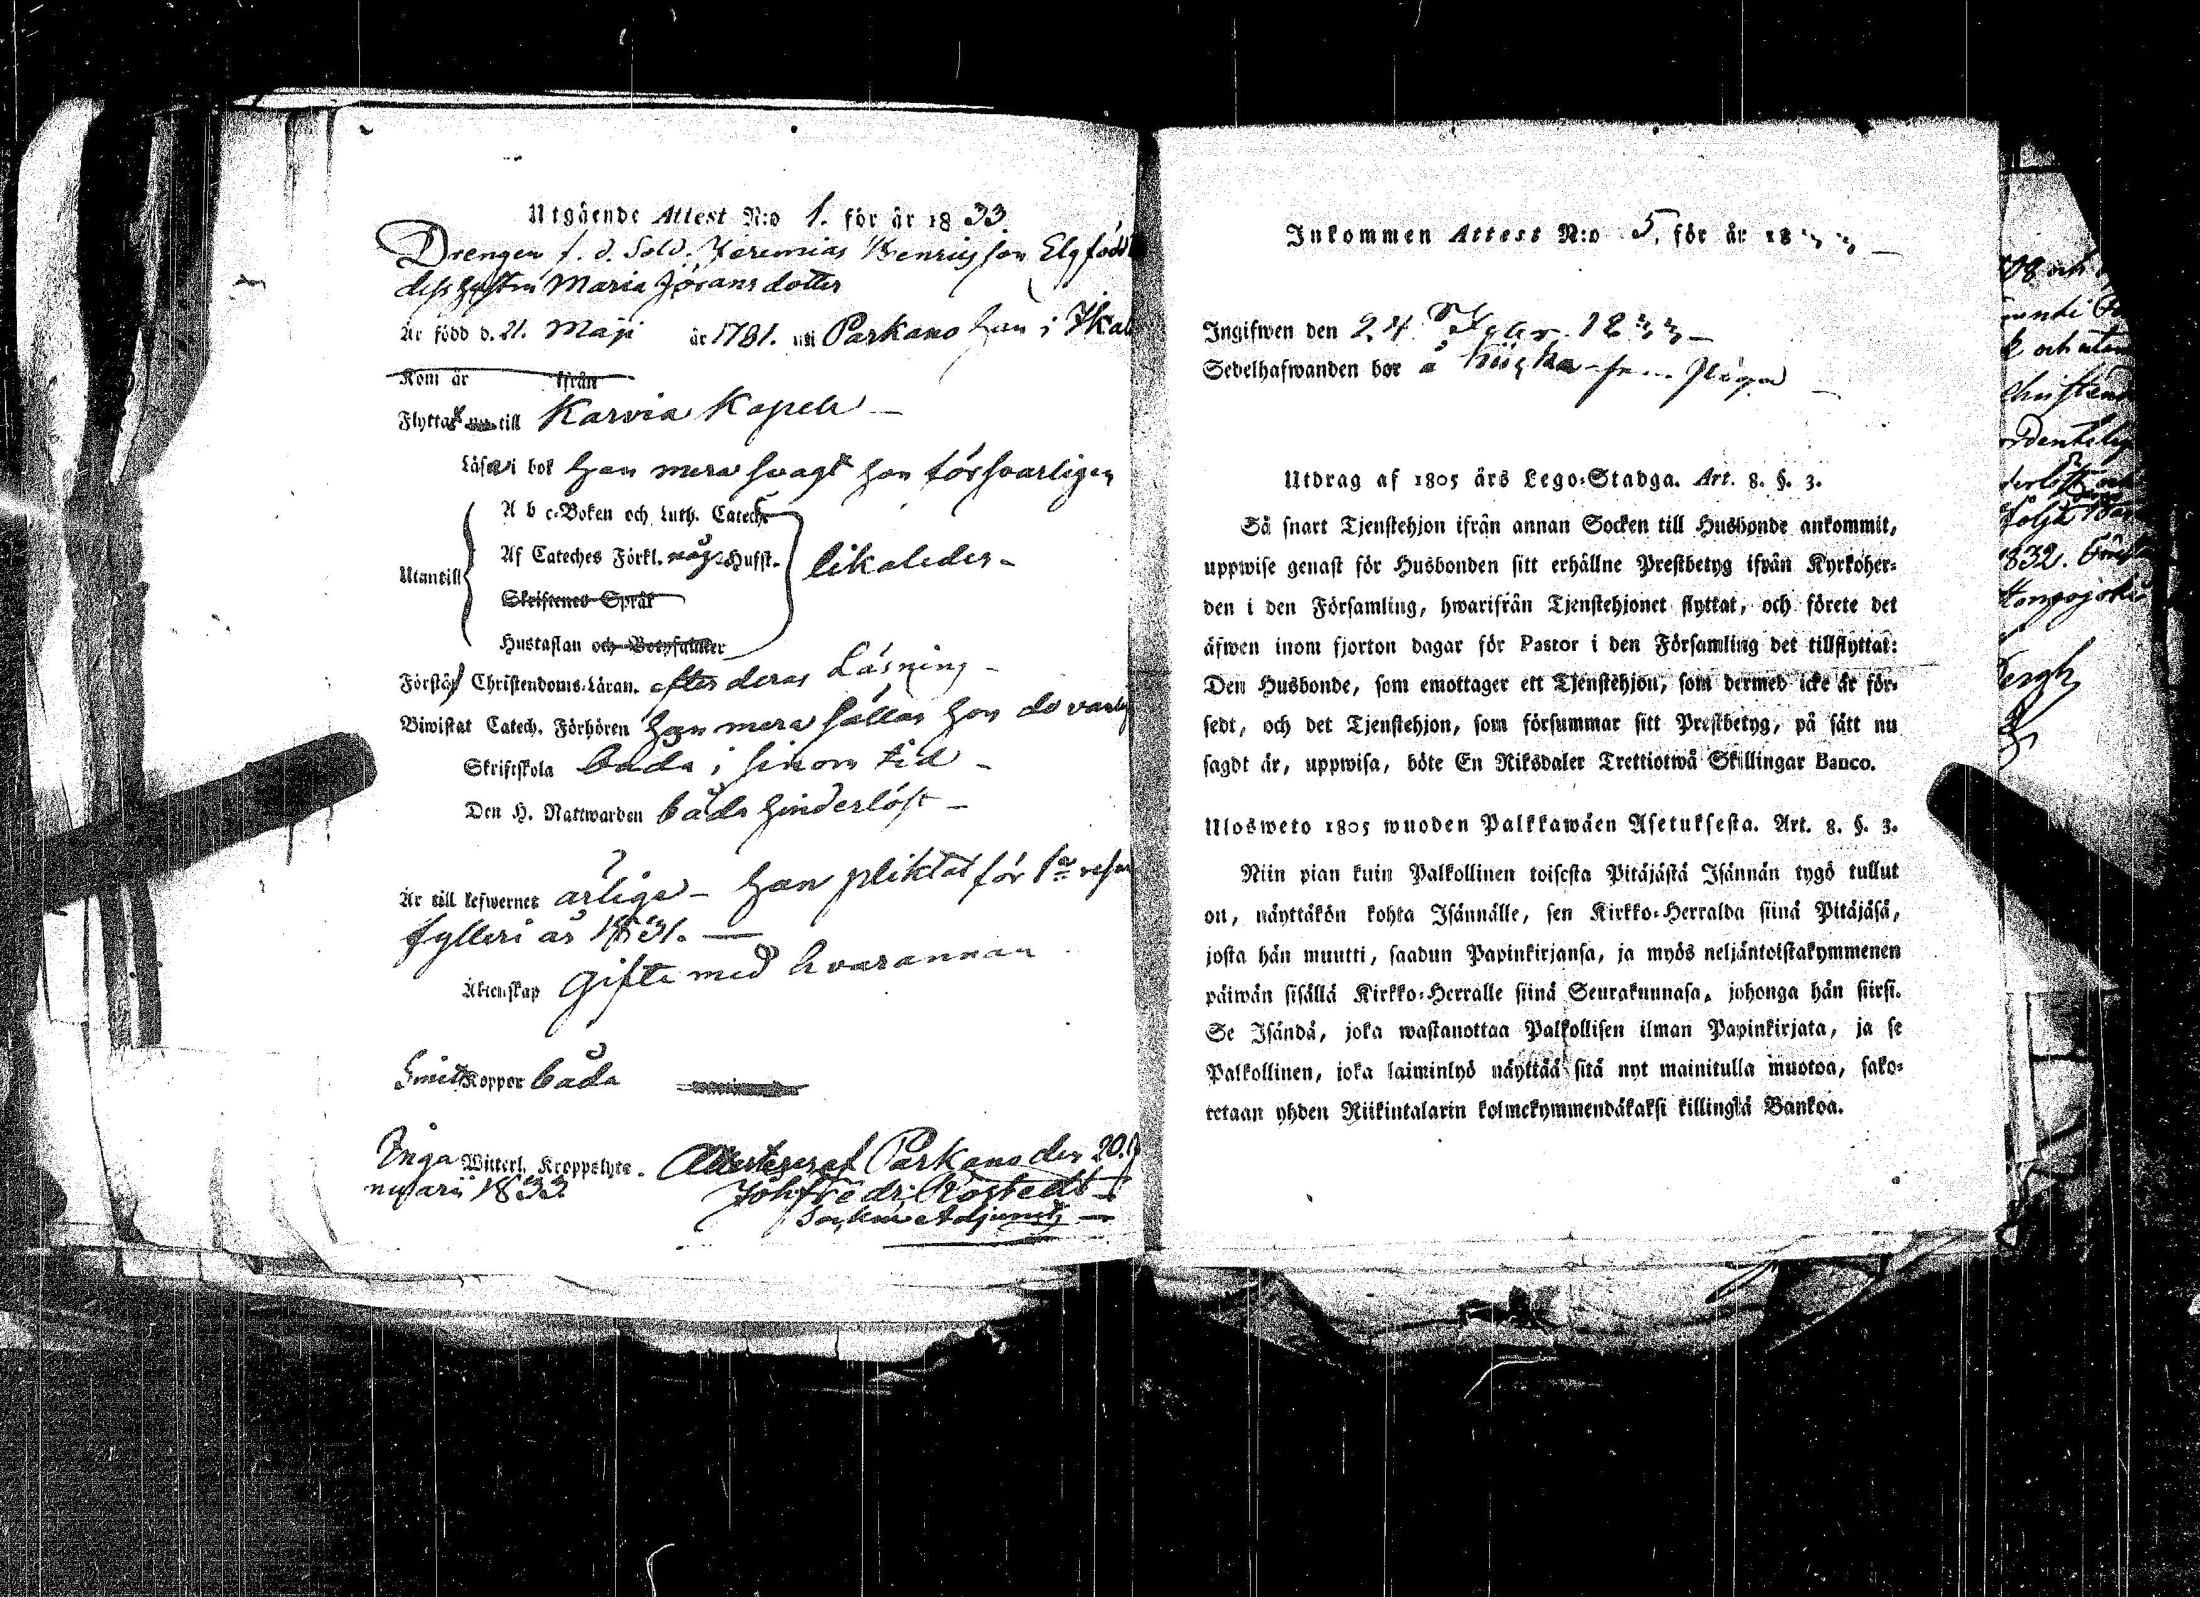 Utgående Attest N:o 1. för år 1833.
Drengen f. d. Sold. Jeremias Henricsson Elg född
dess hustru Maria Jöransdotter
Är född d. 21. Maji år 1781. uti Parkano hon i Ikal
Kom år ifrån
Flytta till Karvia Kapell
Läsa i bok han mera svagt hon försvarligen
A b c-Boken och Luth. Catech.
Af Cateches Förkl. Husst.
Utantill likaledes
Skriftenes Språk
Hustaflan och Botpsalmer
Förstå Christendoms-Läran. efter deras Läsning
Biwistat Catech. Förhören han mera sällan hon
Skriftskola båda i sinom tid
Den H. Nattwarden båda hinderlöst
Är till lefwernet ärliga han pliktat för 1:a
fylleri år 1831.
Äktenskap gifte med hvarannan
Koppor båda
Inga Witterl. Kroppslyte. Attesterat Parkano den 20.
nuarii 1833. Joh. Fredr. Rostedt
Sockne Adjunct
Inkommen Attest N:o 5. för år 1833
Ingifwen den 24 Febr. 1833
Sedelhafwanden bor å
Utdrag af 1805 års Lego-Stadga. Art. 8. §. 3.
Så snart Tjenstehjon ifrån annan Socken till Husbonde ankommit,
uppwise genast för Husbonden sitt erhållne Prestbetyg ifrån Kyrkoher-
den i den Församling, hwarifrån Tjenstehjonet flyttat, och förete det
äfwen inom fjorton dagar för Pastor i den Församling det tillflyttat:
Den Husbonde, som emottager ett Tjenstehjon, som dermed icke är för-
sedt, och det Tjenstehjon, som försummar sitt Prestbetyg, på sätt nu
sagdt är, uppwisa, böte En Riksdaler Trettiotwå Skillingar Banco.
Ulosweto 1805 wuoden Palkkawäen Asetuksesta. Art. 8. §. 3.
Niin pian kuin Palkollinen toisesta Pitäjästä Isännän tygö tullut
on, näyttäkön kohta Isännälle, sen Kirkko-Herralda siinä Pitäjäsä,
josta hän muutti, saadun Papinkirjansa, ja myös neljäntoistakymmenen
päiwän sisällä Kirkko-Herralle siinä Seurakunnasa, johonga hän siirsi.
Se Isändä, joka wastanottaa Palkollisen ilman Papinkirjata, ja se
Palkollinen, joka laiminlyö näyttää sitä nyt mainitulla muotoa, sako-
tetaan yhden Riikintalarin kolmekymmendäkaksi killingiä Bankoa.